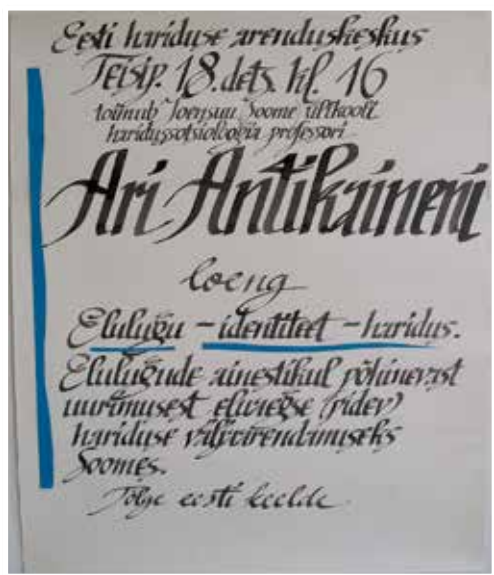 Eesti hariduse arenduskeskus
Teisip. 18. dets. kl. 16
toimub Joensuu Soome ülikooli
haridussotsioloogia professori
Ari Antikaineni
loeng
Elulugu – identiteet – haridus.
Elulugude ainestikul põhinevast
uurimusest eluaegse (pidev)
hariduse väljaarendamiseks
Soomes.
Tõlge eesti keelde